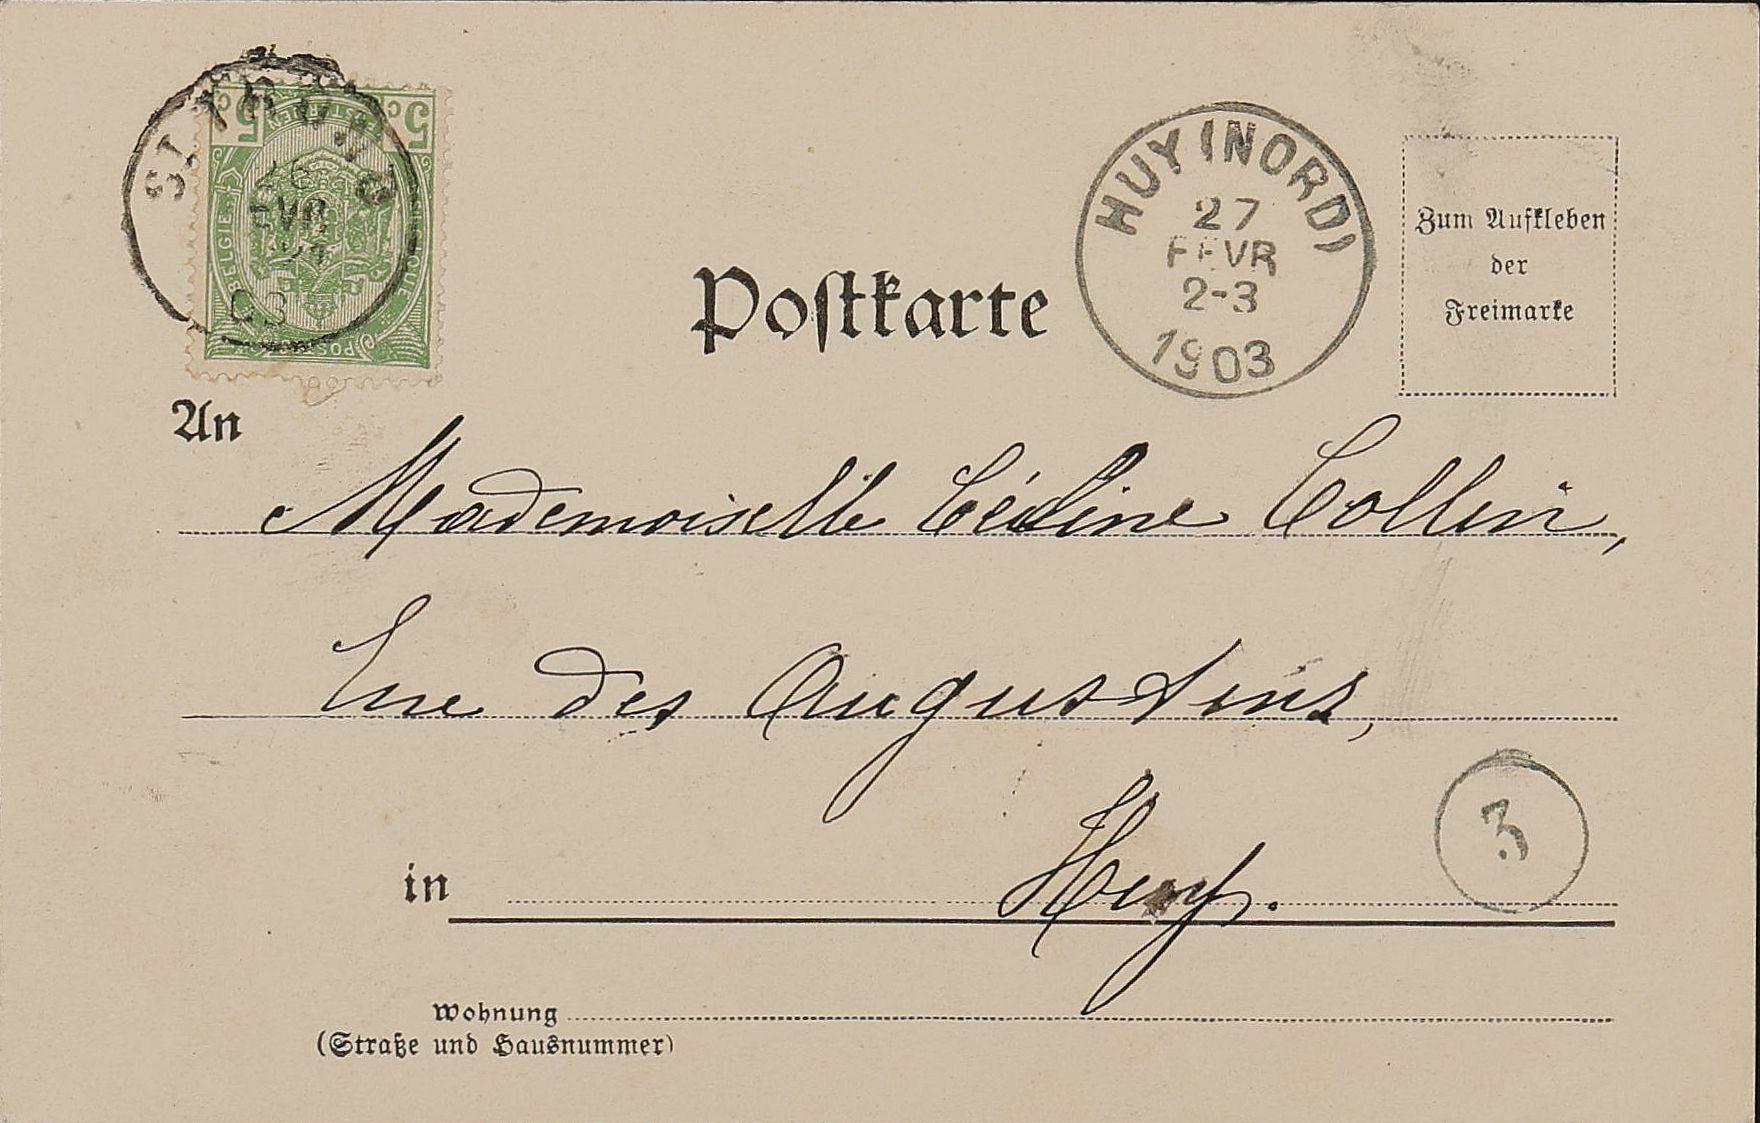 ST TROND
26
FEVR
21
03
5 C
C 5
BELGIE
BELGIQUE
POSTERIJEN
POSTES
HUY (NORD)
27
FEVR
2-3
1903
Zum Aufkleben
der
Freimarke
Postkarte
An
Mademoiselle Céline Collin,
Rue des Augustins,
3
in Huy.
Wohnung
(Straße und Hausnummer)